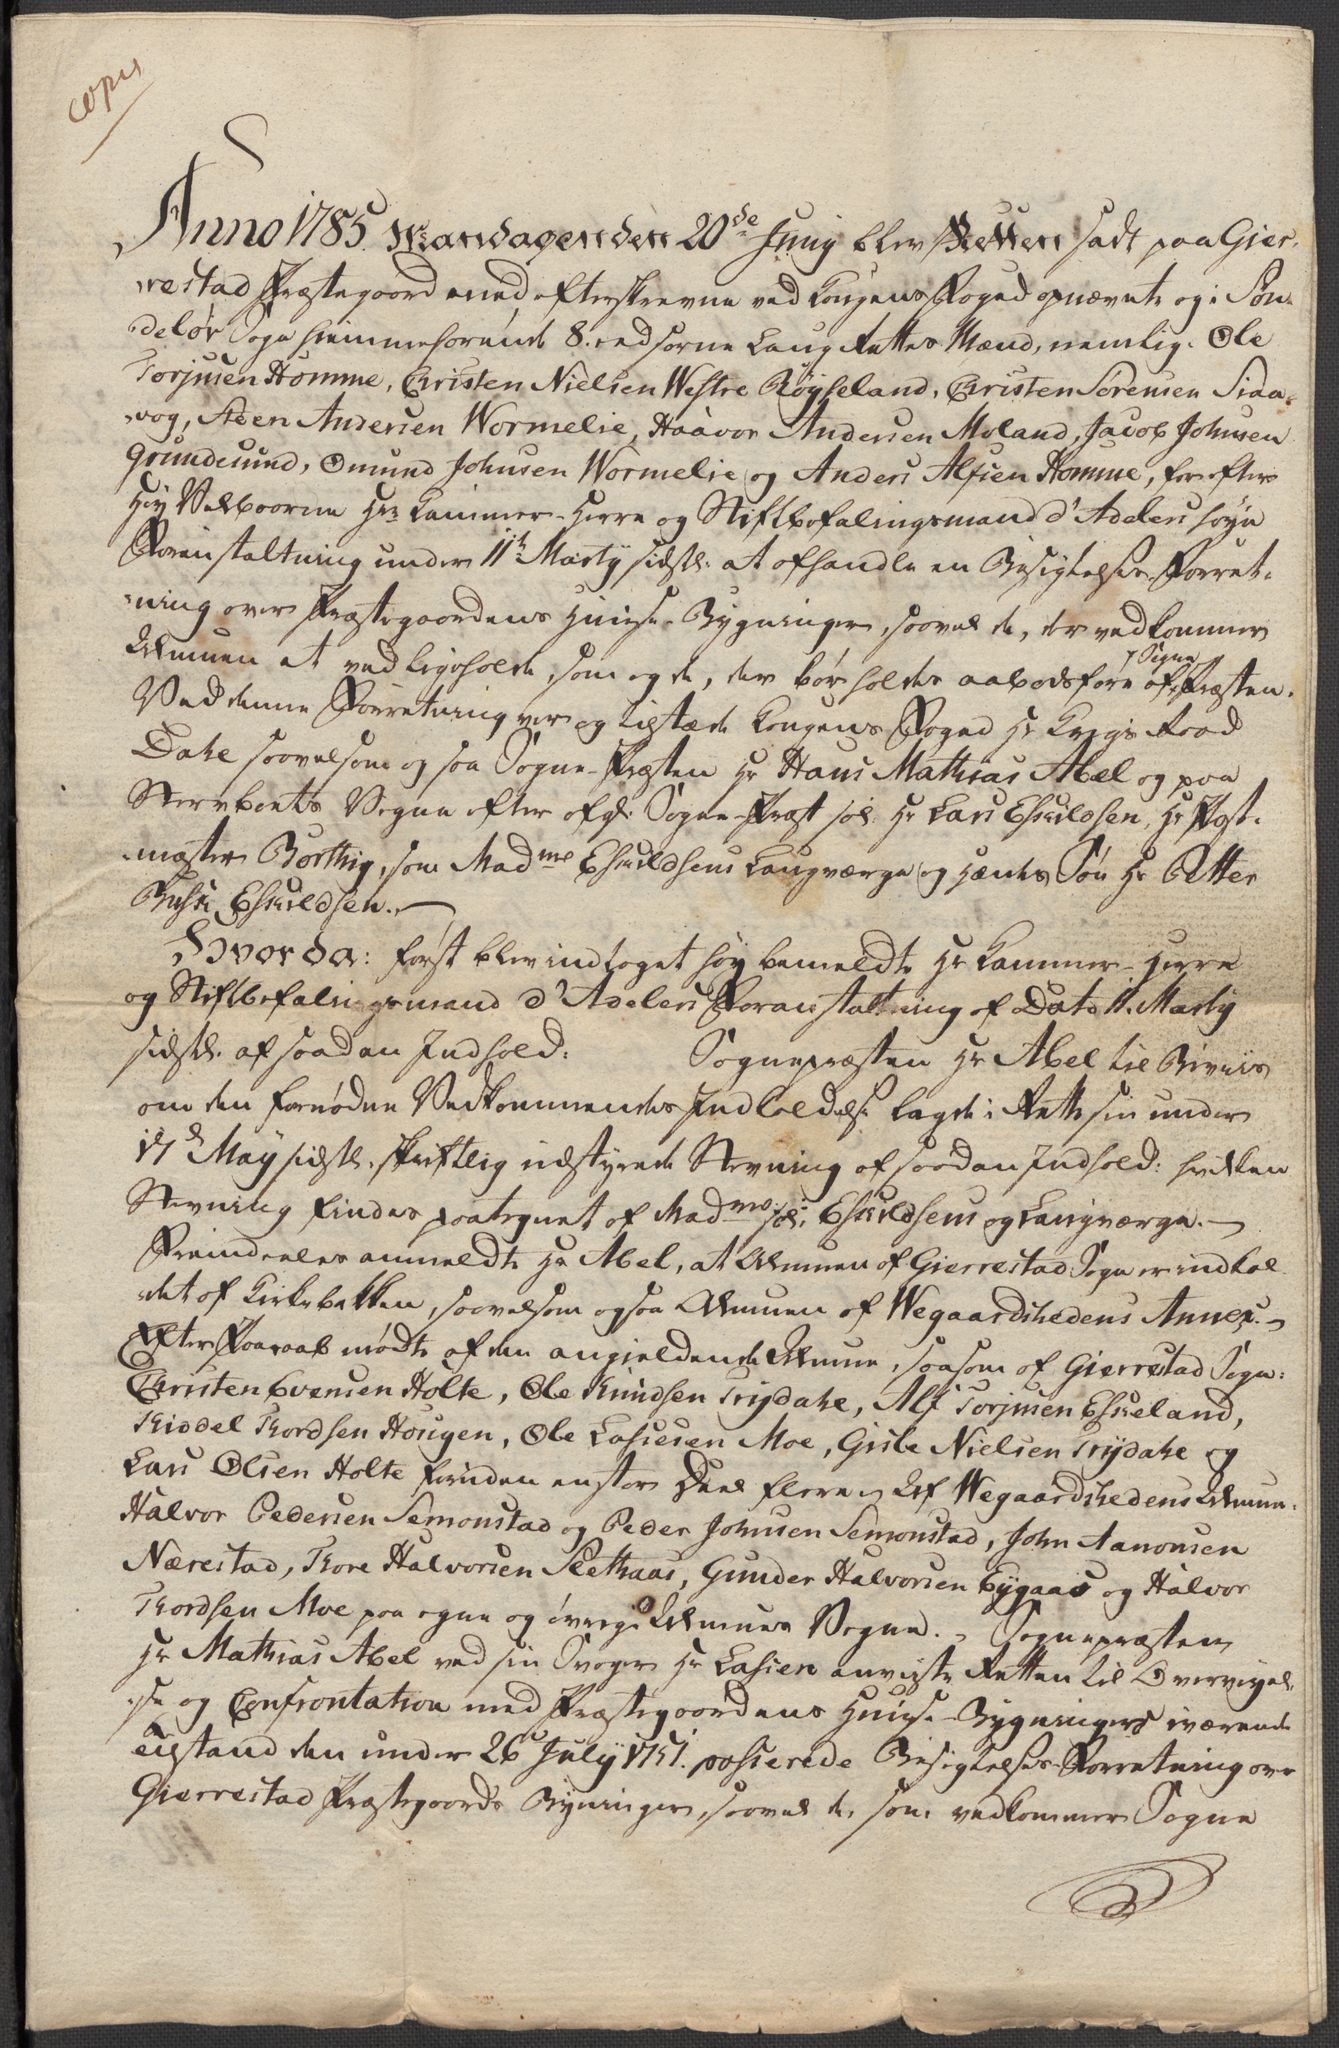 copie
Anno 1785 Mandagen den 20de Juny blev Retten sadt paa Gier-
restad Præstegaard med efterskrevne ved Kongens Foged opnævnte og i Søn-
deløv Sogn hiemmehørende 8. edsorne Laug Rettes Mænd, nemlig: Ole
Torjusen Homme, Christen Nielsen Westre Røyseland, Christen Sørensen Siva-
vog, Steen Andersen Wormelie, Haavor Andersen Moland, Jacob Johnsen
Grundesund, Omund Johnsen Wormelie og Anders Alfsen Homme, for efter
Høy Velbaarne Hr. Kammer-Herre og Stiftbefalingsmand d'Adelers høye
Foranstaltning under 11te Martÿ sidstl. at afhandle en Besigtelses-Forret-
ning over Præstegaardens Huuse-Bygninger, saavel de, der vedkommer
Almuen at vedligeholde, som og de, der bør holdes aabodsfore af Sogne Præsten.
Ved denne Forretning var og tilstæde Kongens Foged Hr. Krigs Raad
Dahe saavelsom og saa Sogne-Præsten Hr. Hans Mathias Abel og paa
Sterboets Vegne efter afgl. Sogne-Præst sal. Hr. Lars Eskildsen, Hr. Post-
mester Borthig, som Madme Eskildsens Laugværge og hendes Søn Hr. Petter
Eskildsen.
Hvorda: først blev indtaget høy bemeldte Hr. Kammer-Herre
og Stiftbefalingsmand d'Adelers Foranstaltning af Dato 11. Martÿ
sidstl. af saadan Indhold: Sognepræsten Hr. Abel til Beviis
om den fornødne Vedkommendes Indkaldelse lagde i Rette sin under
17de Maÿ sidstl. skriftlig udstyrede Stevning af saadan Indhold: hvilken
Stevning findes paategnet af Madme sal. Eskildsens og Laugværge.
Fremdeeles anmeldte Hr. Abel, at Almuen af Gierrestad Sogn er indkal-
det af Kirkebakken, saavelsom ogsaa Almuen af Wegaardshedens Annex.
Efter Paaraab mødte af den angieldende Almue, saasom af Gierrestad Sogn:
Christen Evensen Holte, Ole Knudsen Trydahe, Alf Torjusen Eskeland,
Kiddel Thordsen Hougen, Ole Lassesen Moe, Gisle Nielsen Trydahe og
Lars Olsen Holte foruden en stor Deel flere. Af Wegaardshedens Almue:
Halvor Pedersen Semonstad og Peder Johnsen Semonstad, John Aanonsen
Nærestad, Thore Halvorsen Slethaas, Gunder Halvorsen Eÿgaas og Halvor
Thordsen Moe paa egne og øvrige Almues Vegne. Sognepræsten
Hr. Mathias Abel ved sin Svoger Hr. Lassen anviiste Retten til Overveyel-
se og Confrontation med Præstegaardens Huuse-Bygningers iværende
tilstand den under 26 Julÿ 1751. passerede Besigtelses-Forretning over
Gierrestad Præstegaards Bygninger, saavel de, som vedkommer Sogne